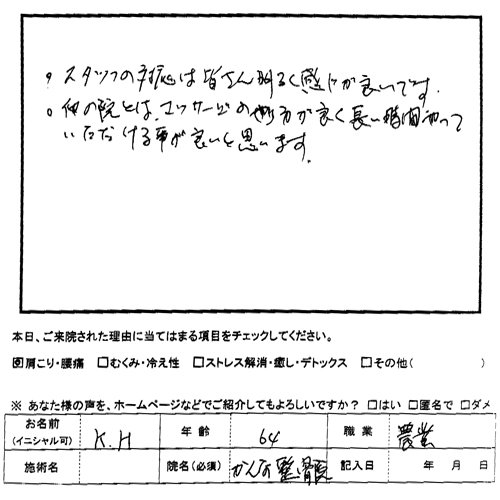 。スタッフの対応は皆さん明るく感じが良いです。
。他の院とは、マッサージのやり方が良く長い時間やって
いただける事が良いと思います。
本日、ご来院された理由に当てはまる項目をチェックしてください。
☑肩こり・腰痛 □むくみ・冷え性 □ストレス解消・癒し・デトックス □その他( )
※ あなた様の声を、ホームページなどでご紹介してもよろしいですか? □はい □匿名で □ダメ
お名前 (イニシャル可) K.H 年齢 64 職業 農業
施術名 院名(必須) かんな整骨院 記入日 年 月 日